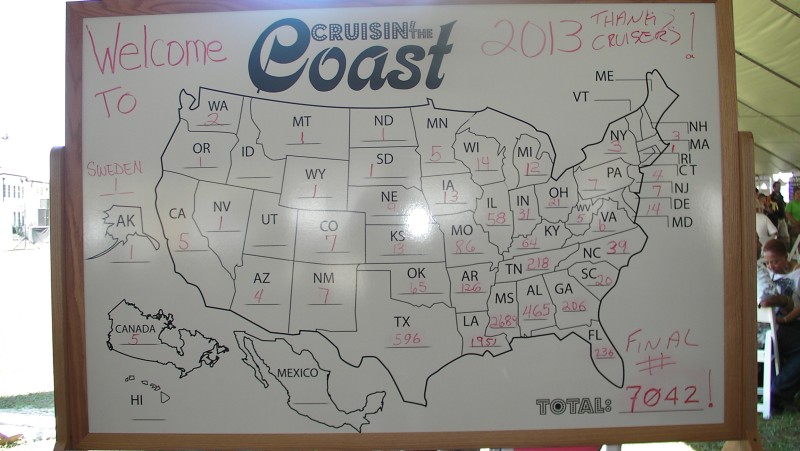 Welcome
To
CRUISIN' THE
Coast
2013
THANKS
CRUISERS!
ME
VT
WA
2
MT
1
ND
1
MN
5
OR
1
ID
SD
1
WY
1
WI
14
MI
12
NY
3
NH
3
MA
1
RI
CT
4
NJ
7
DE
14
MD
PA
7
SWEDEN
1
AK
1
CA
5
NV
1
UT
CO
7
NE
KS
13
IA
13
MO
86
IL
58
IN
31
OH
21
WV
5
VA
6
KY
64
AZ
4
NM
7
OK
65
AR
126
TN 218
NC 39
SC
20
MS
2689
AL
465
GA
206
TX
596
LA
1951
FL
236
CANADA
5
MEXICO
HI
FINAL
#
TOTAL: 7042!